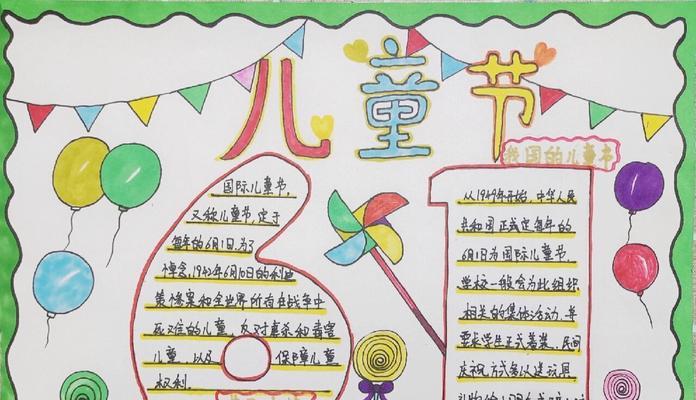 儿童节
我国的儿童节
国际儿童节,
又称儿童节,定于
每年的6月1日.为了
悼念.1942年6月10日的利迪
策惨案和全世界所有在战争中
死难的儿童,反对虐杀和毒害
儿童,以及保障儿童
权利.
从1949年开始,中华人民
共和国正式定每年的
6月1日为国际儿童节.
学校一般会为此组织
相关的集体活动,并
要求学生正式着装.民间
庆祝方式多以送玩具